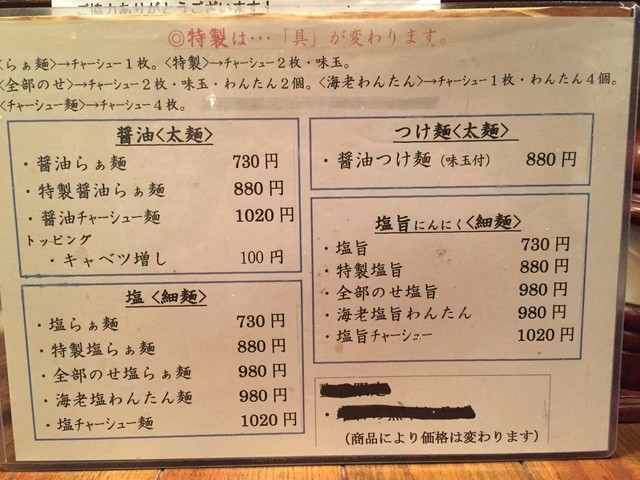 ご協力ありがとうございます!
◎特製は…「具」が変わります。
<らぁ麺>→チャーシュー1枚。<特製>→チャーシュー2枚・味玉。
<全部のせ>→チャーシュー2枚・味玉・わんたん2個。<海老わんたん>→チャーシュー1枚・わんたん4個。
<チャーシュー麺>→チャーシュー4枚。
醤油<太麺>
・醤油らぁ麺 730円
・特製醤油らぁ麺 880円
・醤油チャーシュー麺 1020円
トッピング
・キャベツ増し 100円
塩<細麺>
・塩らぁ麺 730円
・特製塩らぁ麺 880円
・全部のせ塩らぁ麺 980円
・海老塩わんたん麺 980円
・塩チャーシュー麺 1020円
つけ麺<太麺>
・醤油つけ麺(味玉付) 880円
塩旨にんにく<細麺>
・塩旨 730円
・特製塩旨 880円
・全部のせ塩旨 980円
・海老塩旨わんたん 980円
・塩旨チャーシュー 1020円
(商品により価格は変わります)